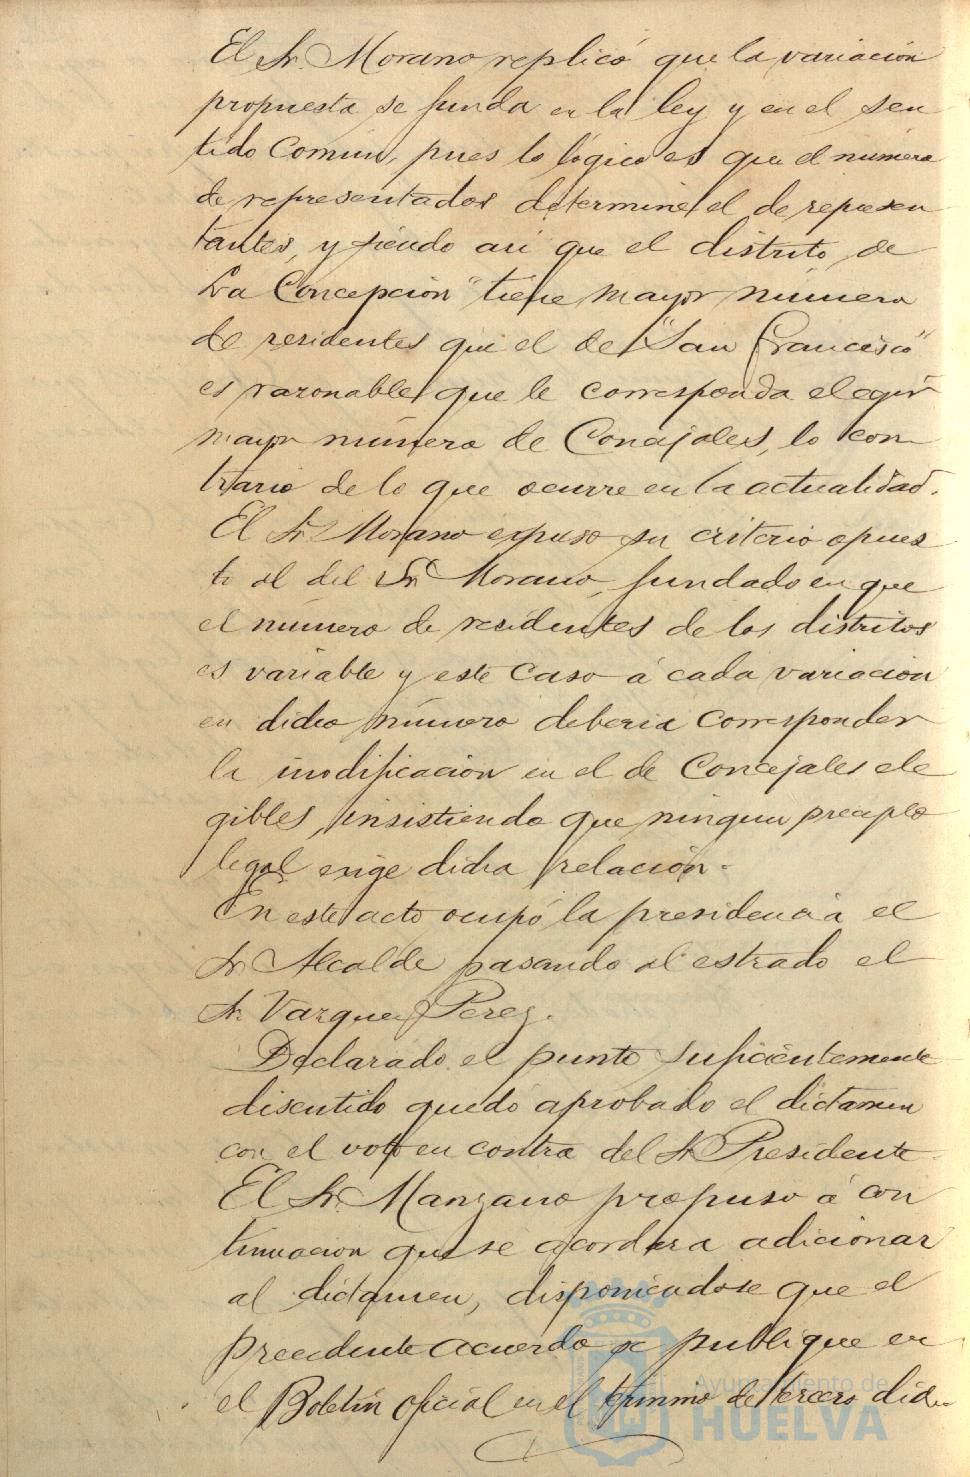 El Sr. Morano replicó que la variación
propuesta se funda en la ley y en el sen
tido Comun, pues lo lógico es que el número
de representados determine el de represen
tantes, y siendo así que el distrito de
La Concepción" tiene mayor número
de residentes que el de "San Francisco"
es razonable que le corresponda elegir
mayor número de Concejales, lo con
trario de lo que ocurre en la actualidad.
El Sr. expuso su criterio opues
to al del Sr. Morano, fundado en que
el número de residentes de los distritos
es variable y este caso á cada variación
en dicho número debería corresponder
la modificación en el de Concejales ele
gibles, insistiendo que ningun precepto
legal exige dicha relación.
En este acto ocupó la presidencia el
Sr Alcalde pasando al estrado el
Sr Vazquez Perez.
Declarado el punto suficientemente
discutido quedó aprobado el dictamen
con el voto en contra del Sr Presidente
El Sr. Manzano propuso á con
tinuacion que se acordara adicionar
al dictamen, disponiendose que el
precedente acuerdo se publique en
el Boletin oficial en el termino de tercero dia
Ayuntamiento de
HUELVA